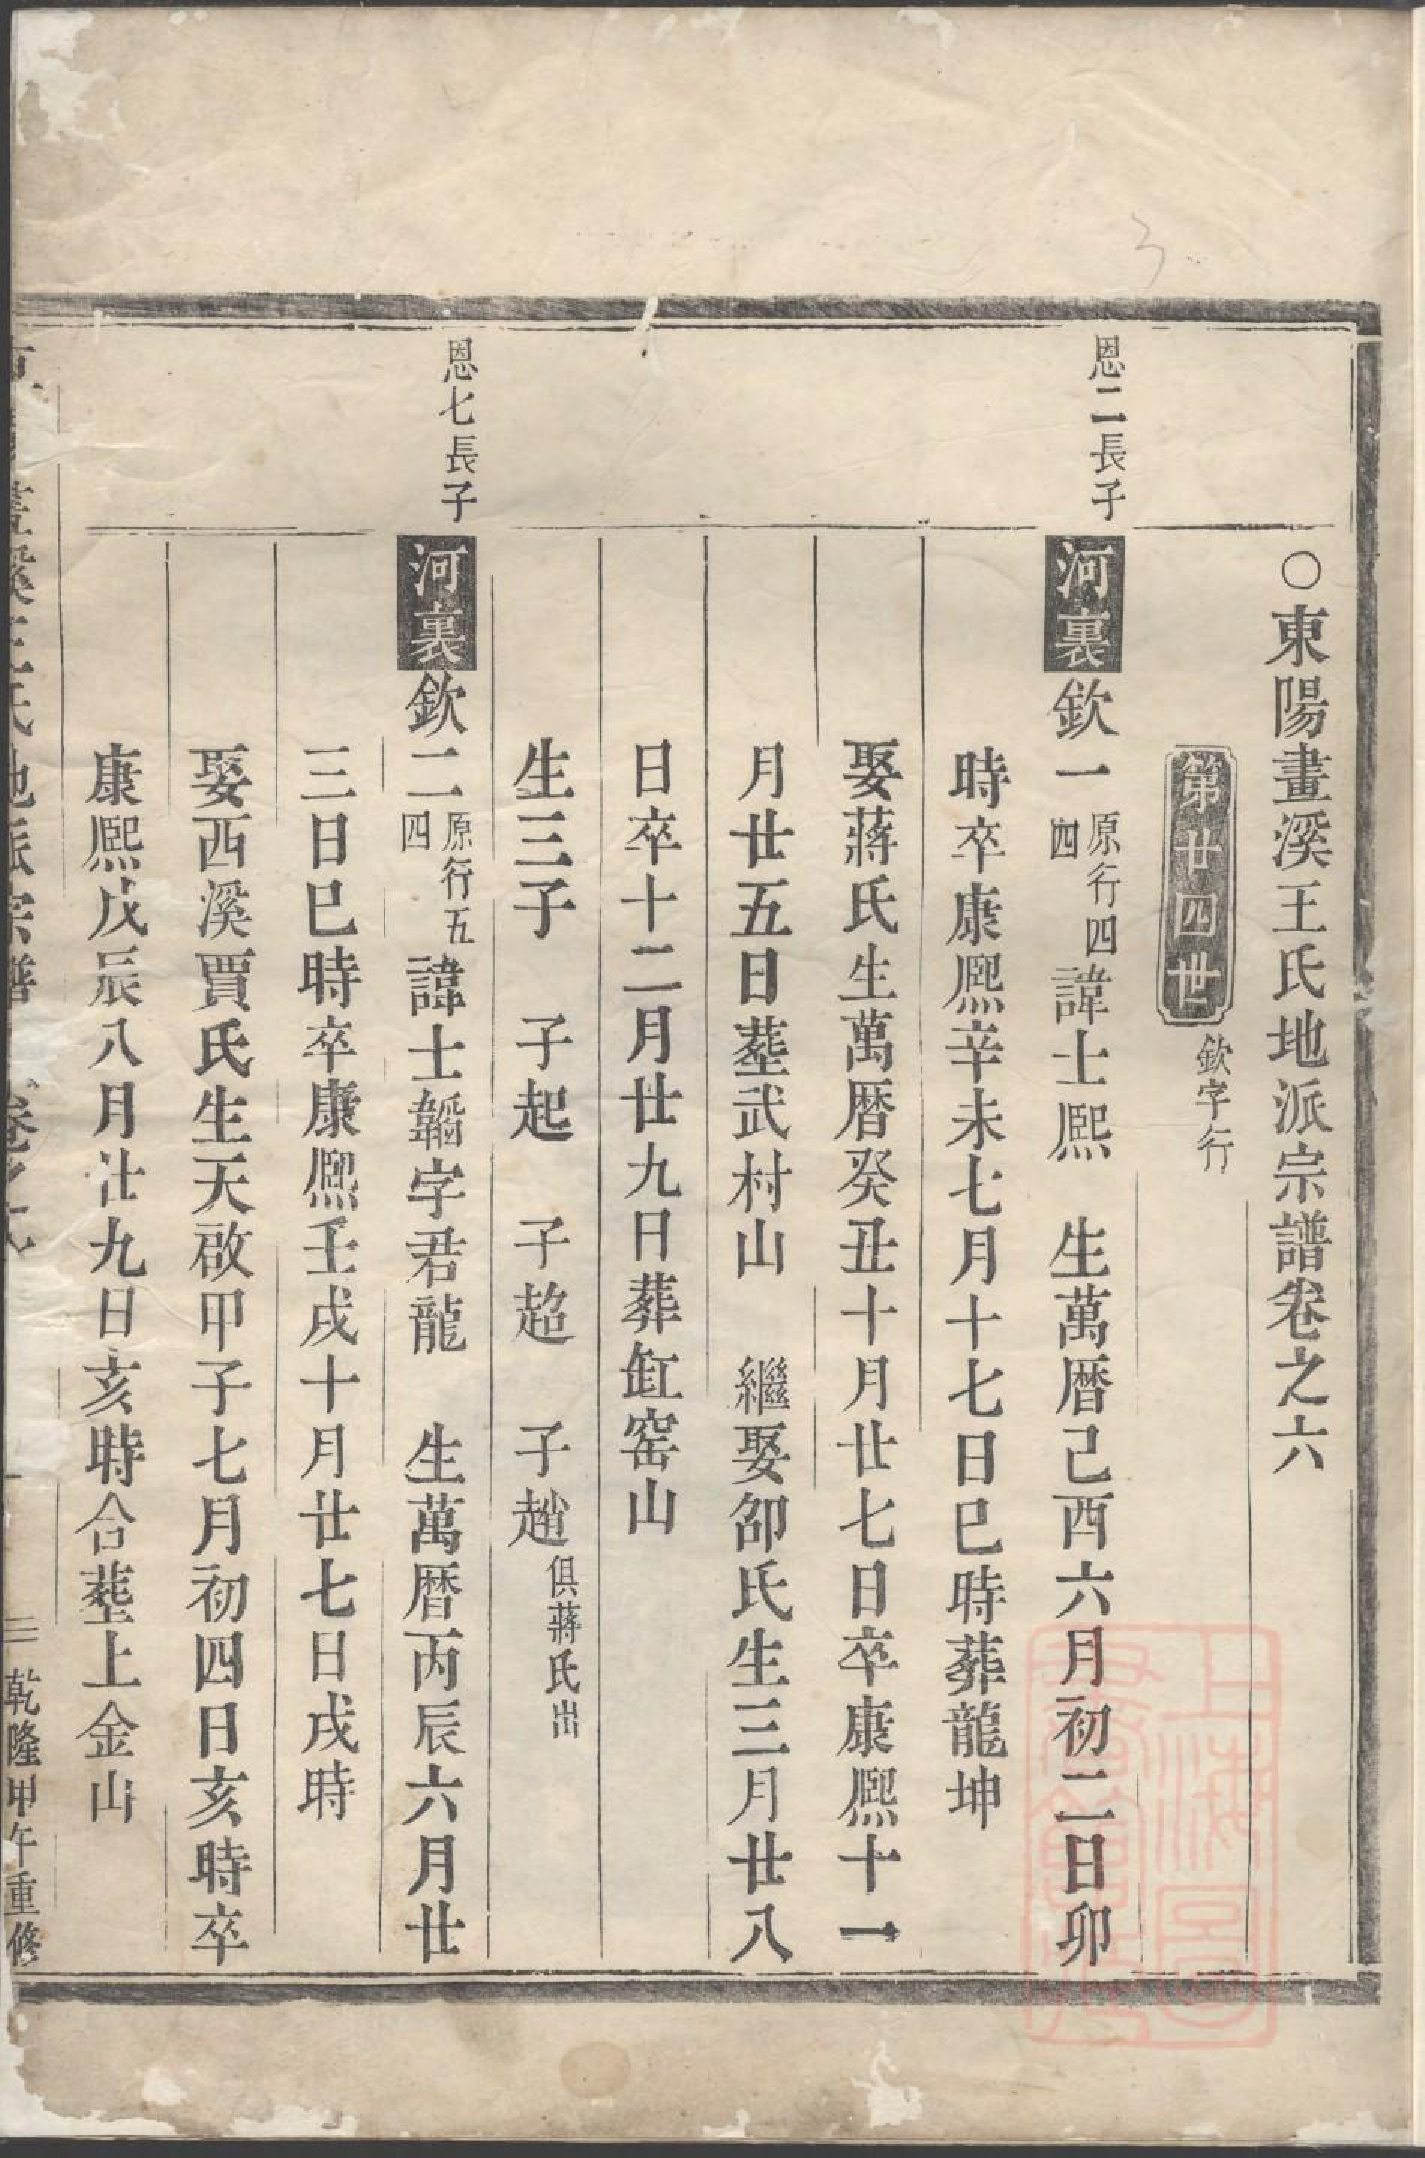 ○東陽畫溪王氏地派宗譜卷之六
第廿四世 欽字行
恩二長子
河裏欽一 原行四四 諱士熈 生萬曆己酉六月初二日卯
時卒康熈辛未七月十七日巳時葬龍坤
娶蔣氏生萬曆癸丑十月廿七日卒康熈十一
月廿五日塟武村山 繼娶邵氏生三月廿八
日卒十二月廿九日葬缸窑山
生三子 子起 子超 子趙 俱蔣氏出
恩七長子
河裏欽二 原行五四 諱士韜字君龍 生萬曆丙辰六月廿
三日巳時卒康熈壬戌十月廿七日戌時
娶西溪賈氏生天啟甲子七月初四日亥時卒
康熈戊辰八月廿九日亥時合塟上金山
畫溪王氏地派宗譜 卷之六 一 三 乾隆甲午重修
上海圖書館藏